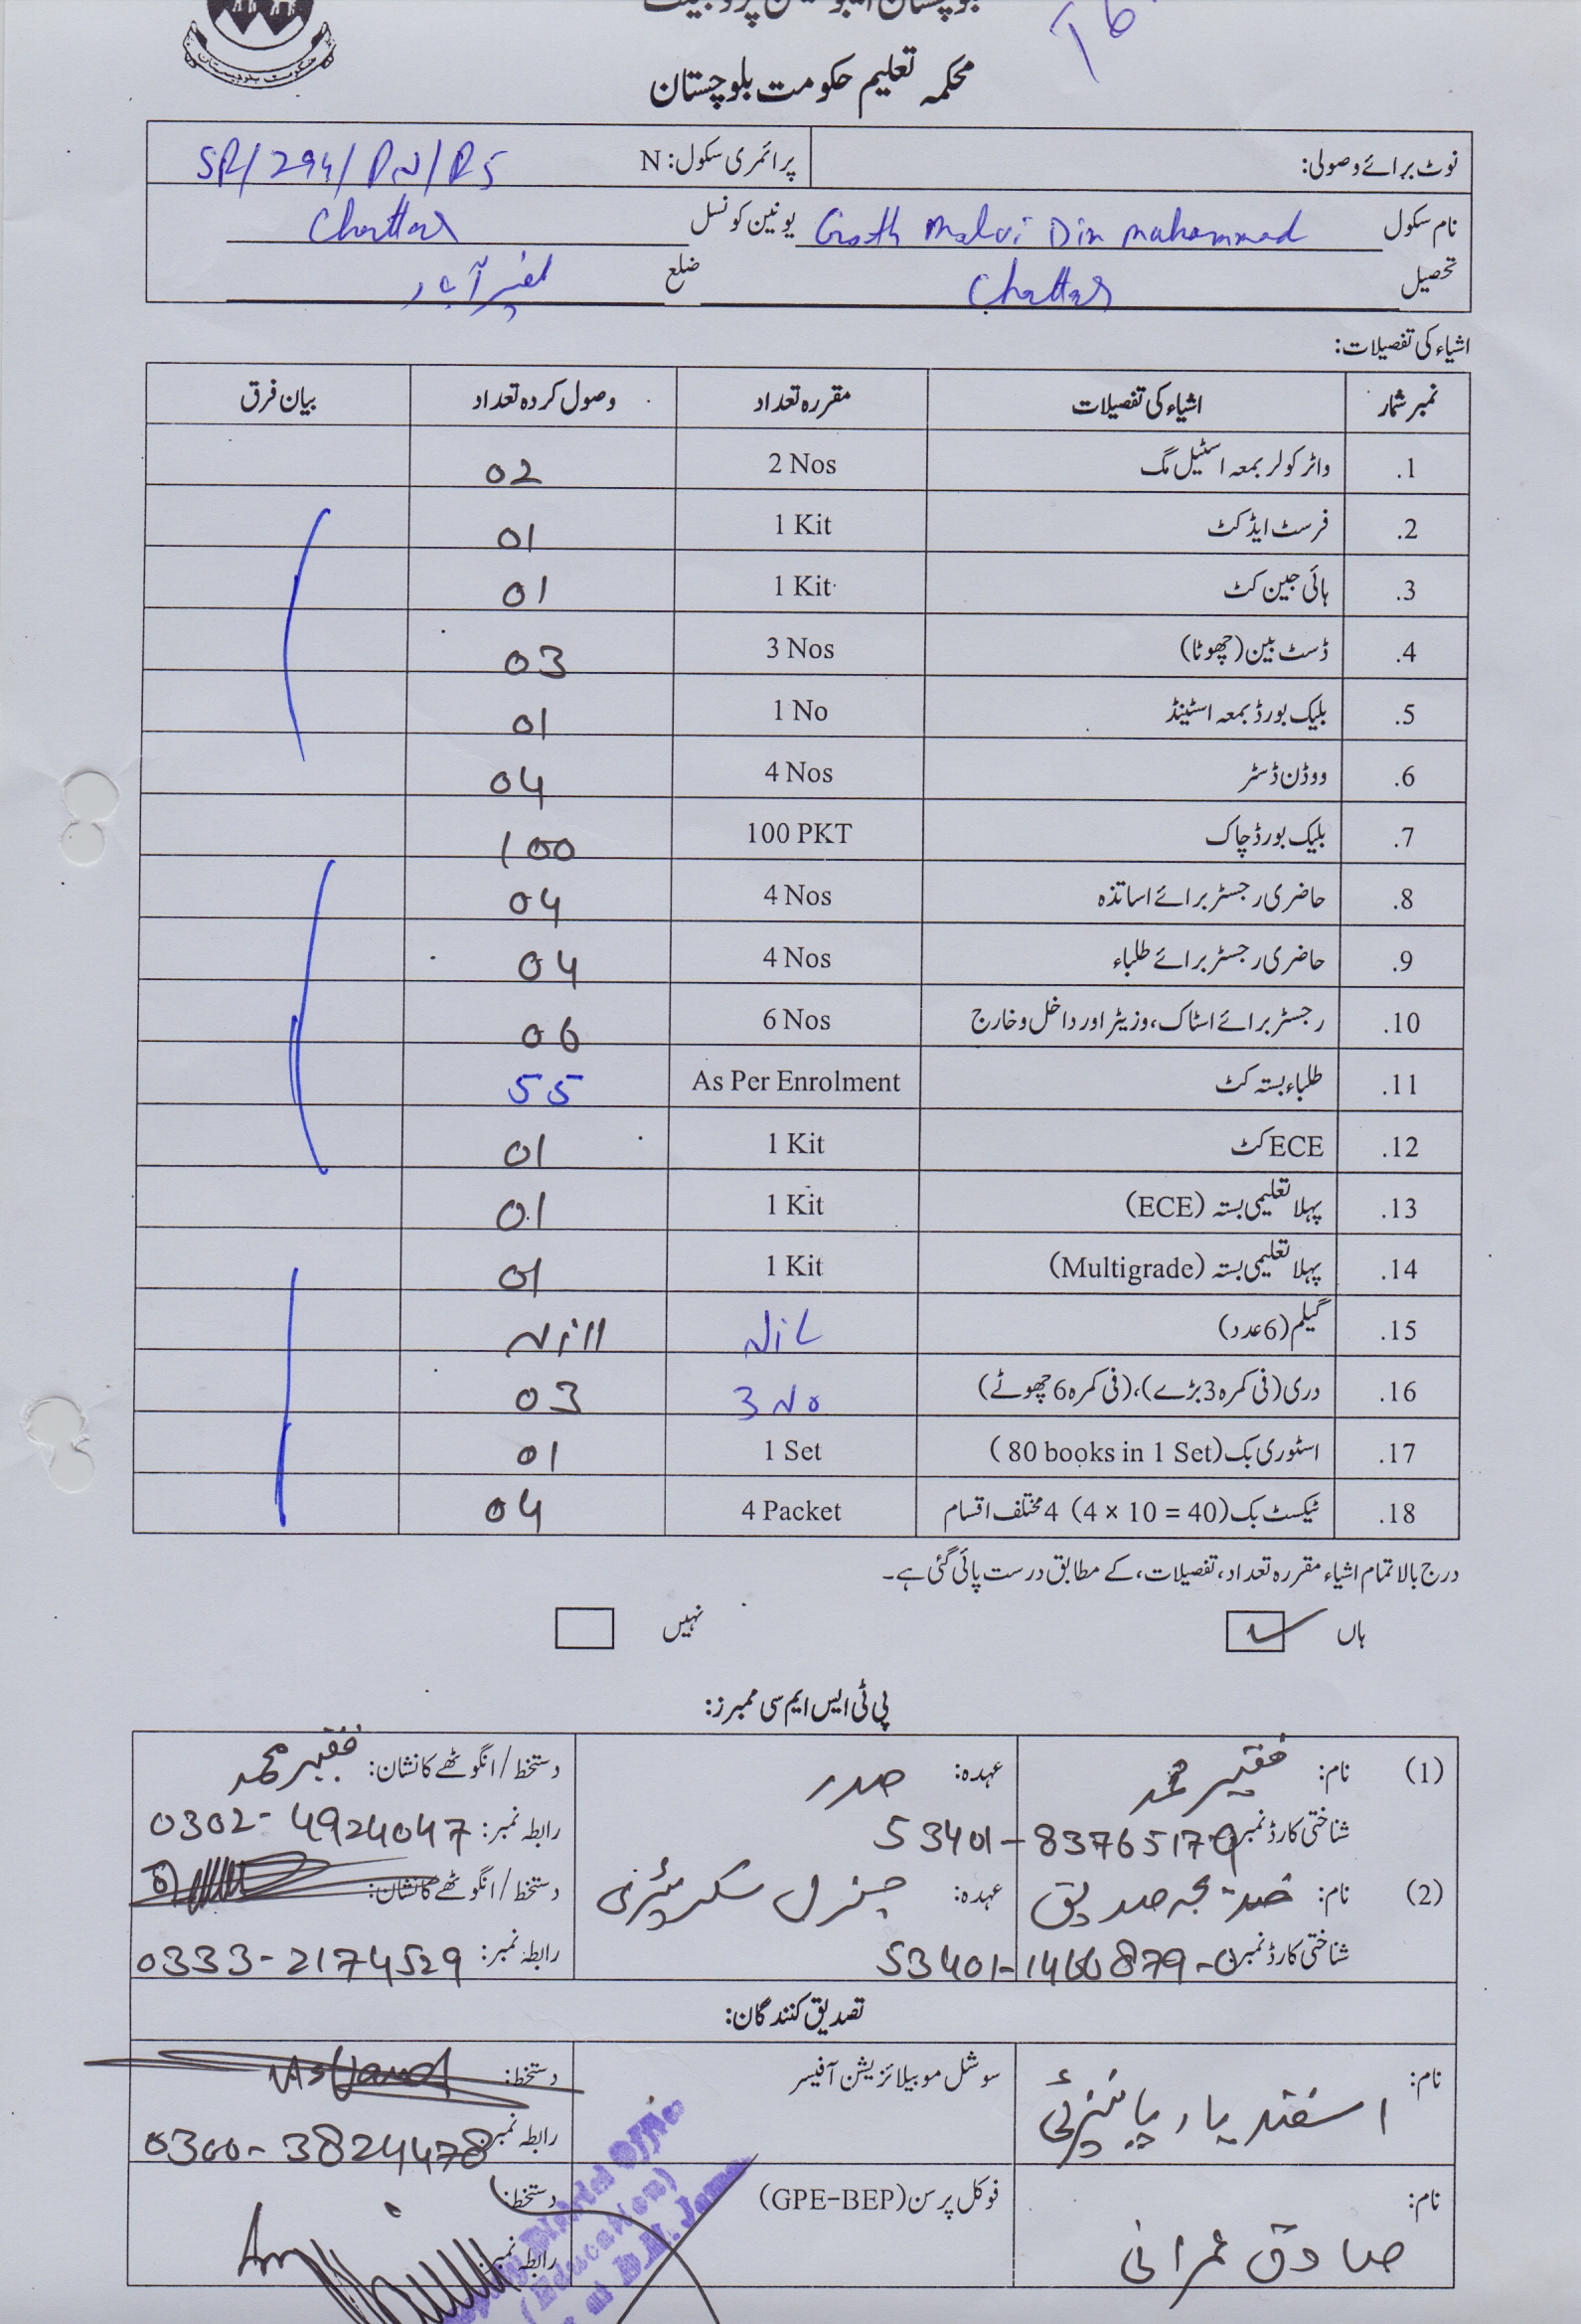 بلوچستان ایجوکیشن پروجیکٹ
محکمہ تعلیم حکومت بلوچستان
حکومت بلوچستان
نوٹ برائے وصولی: پرائمری سکول: N SR/294/DN/R5
نام سکول Goth Molvi Din Muhammad یونین کونسل Chattar
تحصیل Chattar ضلع نصیر آباد
اشیاء کی تفصیلات:
نمبر شمار اشیاء کی تفصیلات مقررہ تعداد وصول کردہ تعداد بیان فرق
1. واٹر کولر بمعہ اسٹیل مگ 2 Nos 02
2. فرسٹ ایڈ کٹ 1 Kit 01
3. ہائی جین کٹ 1 Kit 01
4. ڈسٹ بین (چھوٹا) 3 Nos 03
5. بلیک بورڈ بمعہ اسٹینڈ 1 No 01
6. ووڈن ڈسٹر 4 Nos 04
7. بلیک بورڈ چاک 100 PKT 100
8. حاضری رجسٹر برائے اساتذہ 4 Nos 04
9. حاضری رجسٹر برائے طلباء 4 Nos 04
10. رجسٹر برائے اسٹاک، وزیٹر اور داخل و خارج 6 Nos 06
11. طلباء بستہ کٹ As Per Enrolment 55
12. ECE کٹ 1 Kit 01
13. پہلا تعلیمی بستہ (ECE) 1 Kit 01
14. پہلا تعلیمی بستہ (Multigrade) 1 Kit 01
15. گیلم (6 عدد) NiL Nill
16. دری (فی کمرہ 3 بڑے)، (فی کمرہ 6 چھوٹے) 3 No 03
17. اسٹوری بک (80 books in 1 Set) 1 Set 01
18. ٹیکسٹ بک (4 × 10 = 40) 4 مختلف اقسام 4 Packet 04
درج بالا تمام اشیاء مقررہ تعداد، تفصیلات، کے مطابق درست پائی گئی ہے۔
ہاں نہیں
پی ٹی ایس ایم سی ممبرز:
(1) نام: فقیر محمد عہدہ: صدر دستخط / انگوٹھے کا نشان: فقیر محمد
شناختی کارڈ نمبر 53401-83765179 رابطہ نمبر: 0302-4924047
(2) نام: صدیق عہدہ: جنرل سکریٹری دستخط / انگوٹھے کا نشان:
شناختی کارڈ نمبر 53401-1466879-0 رابطہ نمبر: 0333-2174529
تصدیق کنندگان:
نام: اسفند یار سوشل موبیلائزیشن آفیسر دستخط:
رابطہ نمبر: 0300-3824478
نام: صادق عمرانی فوکل پرسن (GPE-BEP) دستخط:
رابطہ نمبر:
District Officer
(Education)
at D.M. Jamali